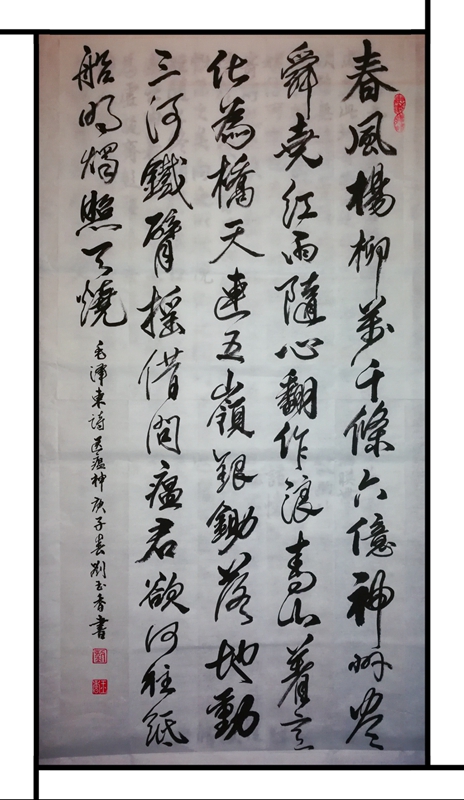 春風楊柳萬千條六億神州盡
舜堯紅雨隨心翻作浪青山着意
化為橋天連五嶺銀鋤落地動
三河鐵臂搖借問瘟君欲何往紙
船明燭照天燒
毛澤東詩送瘟神庚子春劉玉香書